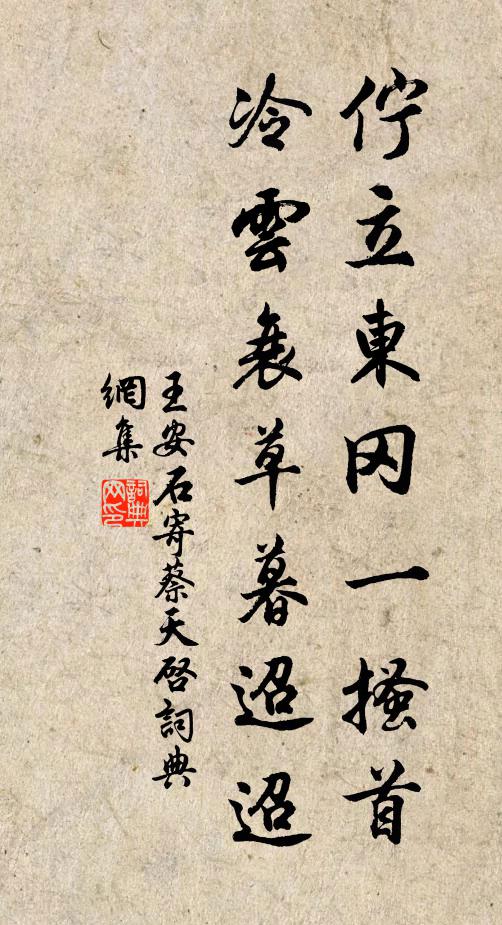 佇立東冈一掻首
冷雲衰草暮迢迢
王安石寄蔡天啓詞典
網集
詞典
网印